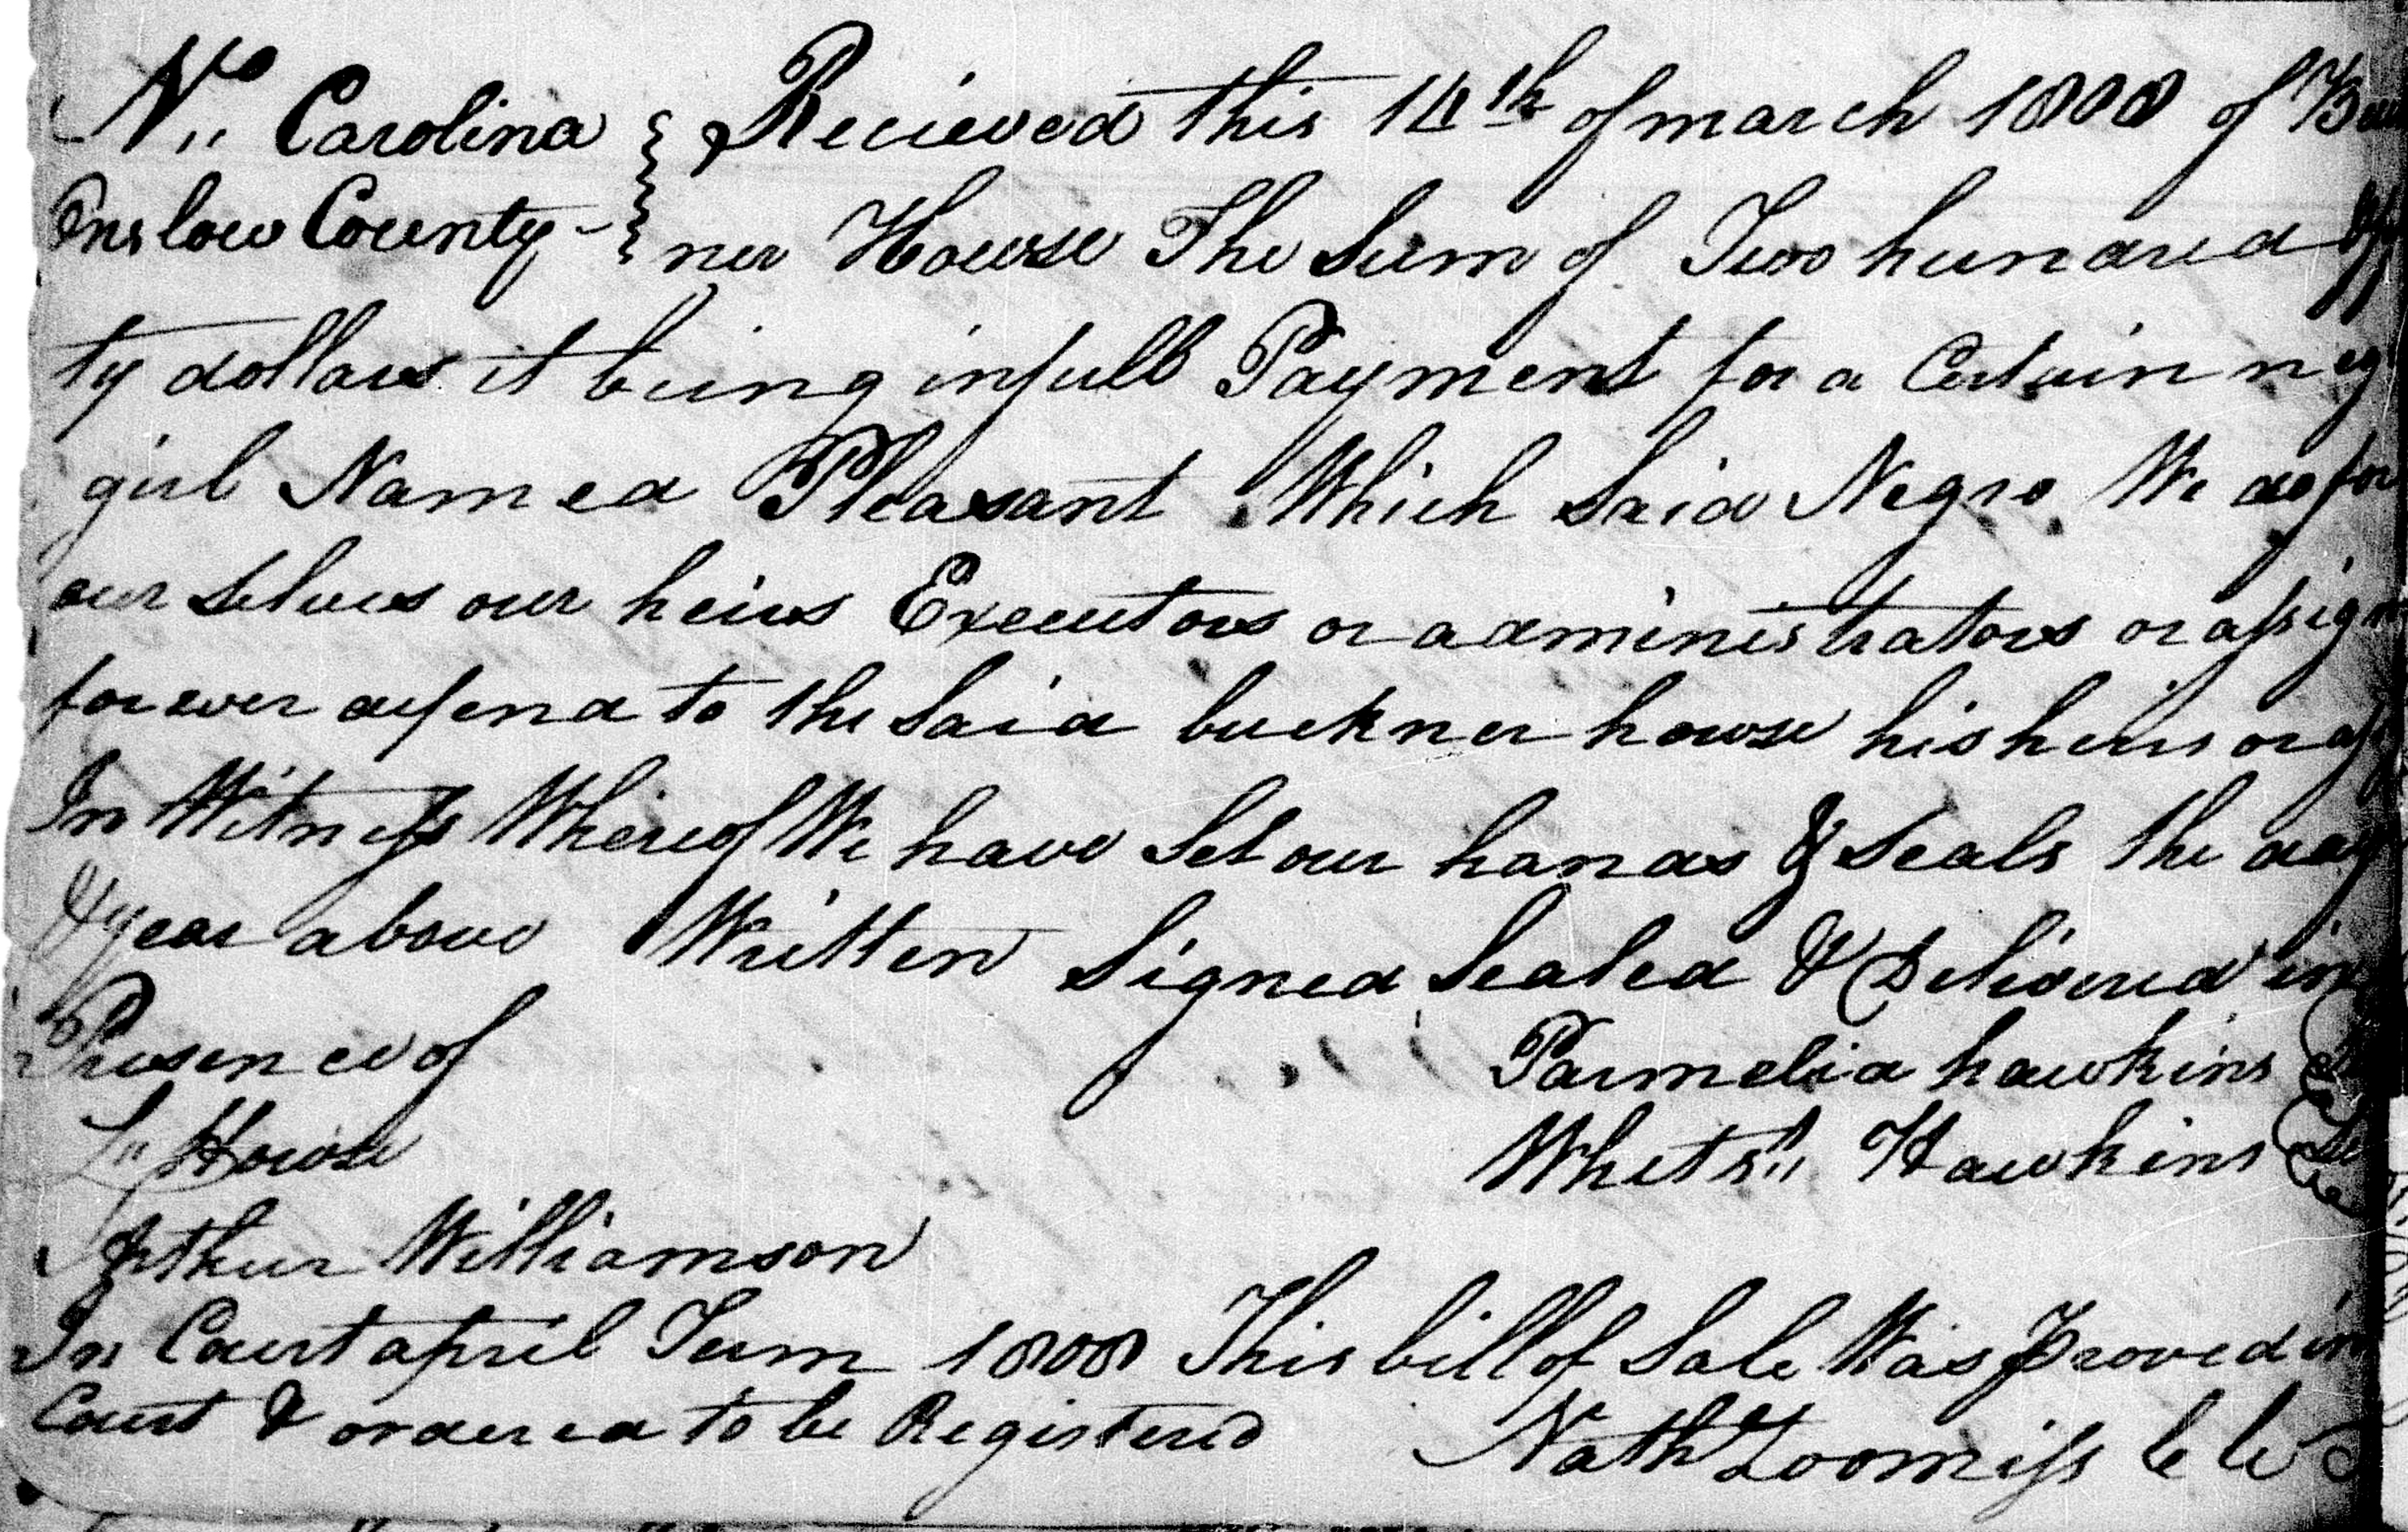 No,, Carolina } Recieved this 14th of march 1808 of Buck
Onslow County - } ner Howse The Sum of Two hundred & fif
ty dollars it being infull Payment for a Certain negro
girl Named Pleasant Which Said Negro We do for
our Selves our heirs Executors or administrators or assign
forever defend to the Said buckner howse his heirs or ass
In Witness Whereof We have Set our hands & Seals the day
& year above Written Signed Sealed & Delivered in
Presence of
Parmelia hawkins Se
L,, Howse
Whets,, Hawkins Se
Arthur Williamson
In Court april Term 1808 This bill of Sale Was Proved in
Court & ordered to be Registered Nath Loomiss